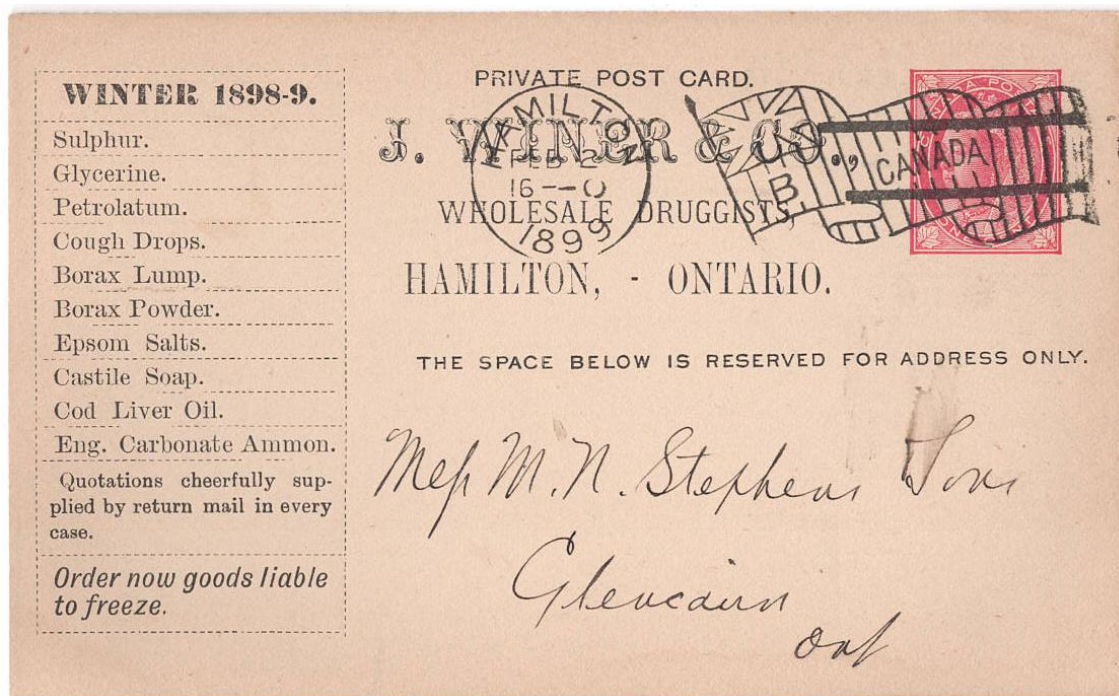 WINTER 1898-9.
Sulphur.
Glycerine.
Petrolatum.
Cough Drops.
Borax Lump.
Borax Powder.
Epsom Salts.
Castile Soap.
Cod Liver Oil.
Eng. Carbonate Ammon.
Quotations cheerfully sup-
plied by return mail in every
case.
Order now goods liable
to freeze.
PRIVATE POST CARD.
J. WINER & CO.,
WHOLESALE DRUGGISTS,
HAMILTON, - ONTARIO.
HAMILTON
FEB 2
16—0
1899
B.
CANADA
THE SPACE BELOW IS RESERVED FOR ADDRESS ONLY.
Mess M. N. Stephens Sons
Glencairn
Ont